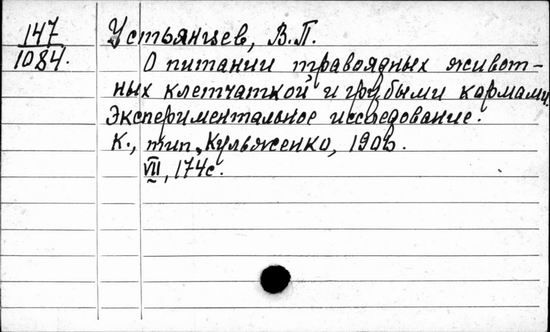 147
1084.
Устьянцев, В.П.
О питании травоядных живот-
ных клетчаткой и грубыми кормами.
Экспериментальное исследование.
К., тип. Кульженко,
VII, 174с.